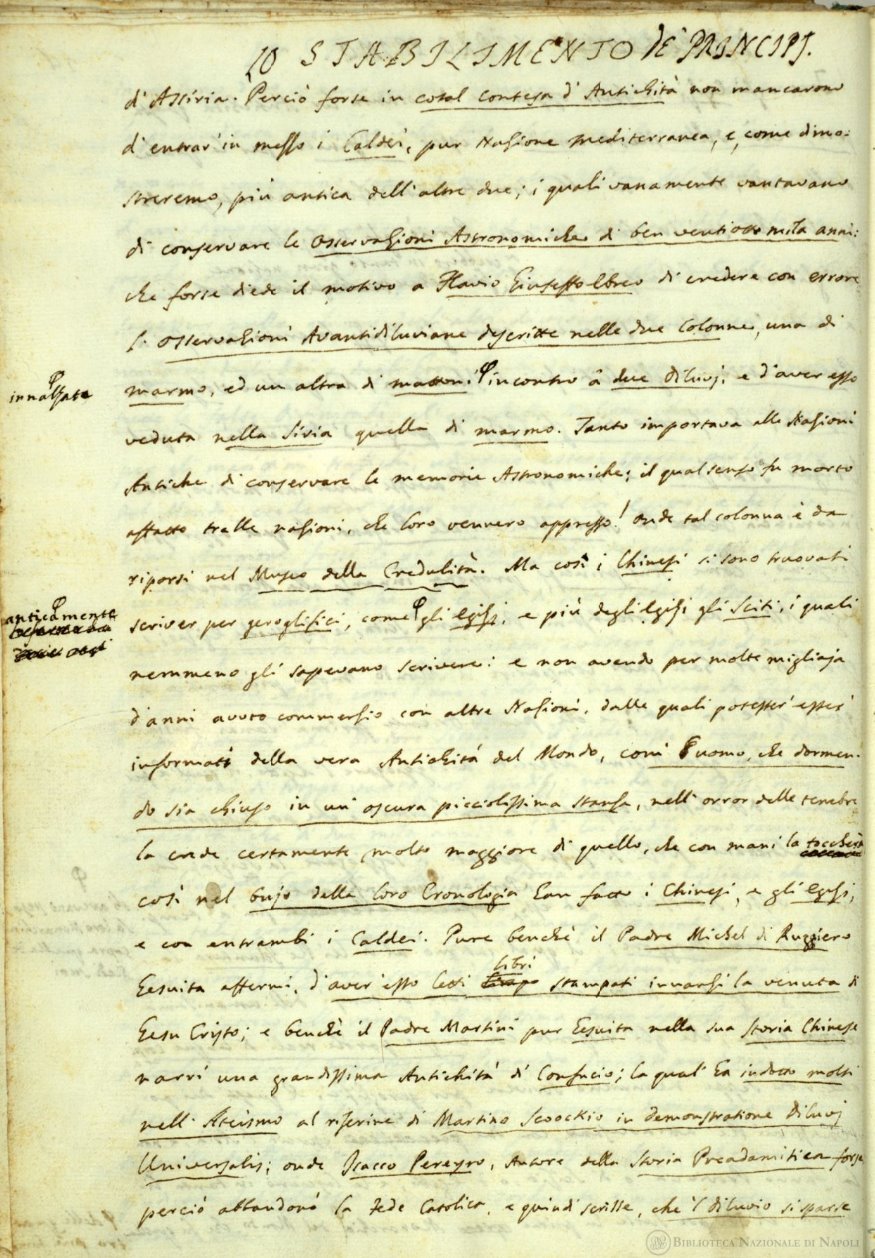 20 STABILIMENTO DE' PRINCIPJ.
d' Assiria. Perciò forse in cotal contesa d' Antichità non mancarono
d' entrar' in messo i Caldei, pur Nazione mediterranea, e, come dimo-
streremo, più antica dell' altre due; i quali vanamente vantavano
di conservare le Osservazioni Astronomiche di ben ventiotto mila anni:
che forse diede il motivo a Flavio Giuseffo Ebreo di credere con errore
l' Osservazioni Avantidiluviane descritte nelle due Colonne, una di
marmo, ed un altra di mattoni incontro â due diluvj, e d'aver esso
innalzate
veduta nella Siria quella di marmo. Tanto importava alle Nazioni
Antiche di conservare le memorie Astronomiche; il qual senso fu morto
affatto tralle nazioni, che loro vennero appresso! onde tal colonna è da
riporsi nel Museo della Credulità. Ma così i Chinesi si sono truovati
scriver per geroglifici, come gli Egizj, e più degli Egizj gli Sciti, i quali
anticamente
nemmeno gli sapevano scrivere: e non avendo per molte migliaja
d'anni avuto commerzio con altre Nazioni, dalle quali potesser' esser'
informati della vera Antichità del Mondo, com' uomo, che dormen-
do sia chiuso in un' oscura picciolissima stanza, nell' orror delle tenebre
la crede certamente molto maggiore di quello, che con mani la toccherà
così nel bujo della loro Cronologia han fatto i Chinesi, e gli Egizj,
e con entrambi i Caldei. Pure benchè il Padre Michel di Ruggiero
Gesuita affermi, d'aver' esso letti libri stampati innanzi la venuta di
Gesu Cristo; e benchè il Padre Martini pur Gesuita nella sua Storia Chinese
narri una grandissima Antichità di Confucio; la qual' ha indotto molti
nell' Ateismo al riferire di Martino Scoockio in demonstratione Diluvj
Universalis; onde Isacco Pereyro, Autore della Storia Preadamitica forse
perciò abbandonò la Fede Catolica, e quindi scrisse, che 'l diluvio si sparse
BIBLIOTECA NAZIONALE DI NAPOLI